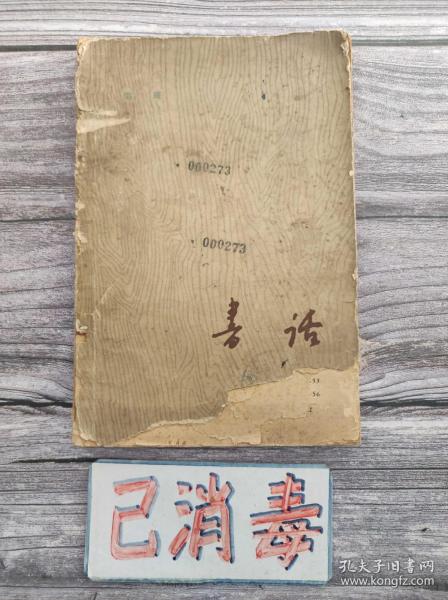 000273
000273
书话
53
56
2
已消毒
孔夫子旧书网
www.kongfz.com